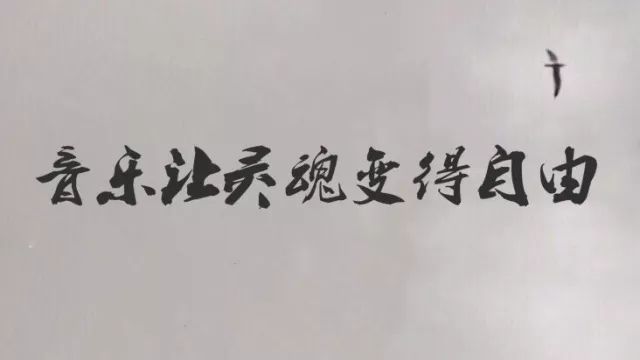 音乐让灵魂变得自由